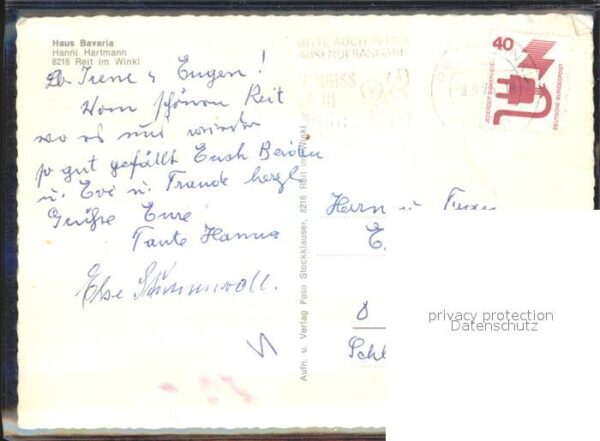 Haus Bavaria
Hanni Hartmann
8216 Reit im Winkl
Lb. Irene u. Eugen!
Vom schönen Reit
wo es uns wieder
so gut gefällt Euch Beiden
u. Evi u. Traude herzl.
Grüße Eure
Tante Hanna
Else
Aufn. u. Verlag Foto Stockklauser, 8216 Reit im Winkl
BITTE AUCH IN DIE
ABSENDERANGABE
40
JEDERZEIT SICHERHEIT
DEUTSCHE BUNDESPOST
Herrn u. Frau
E
8
Schl
privacy protection
Datenschutz